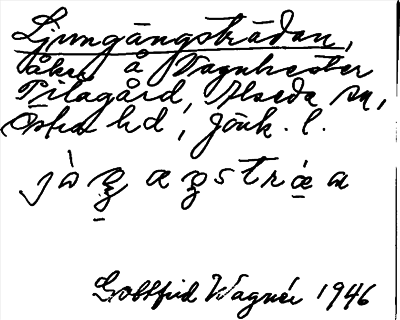 Ljungängsträdan,
åker å Vagnhester
Pilagård, Alseda sn,
Östra hd, Jönk. l.
Gottfrid Wagnér 1946